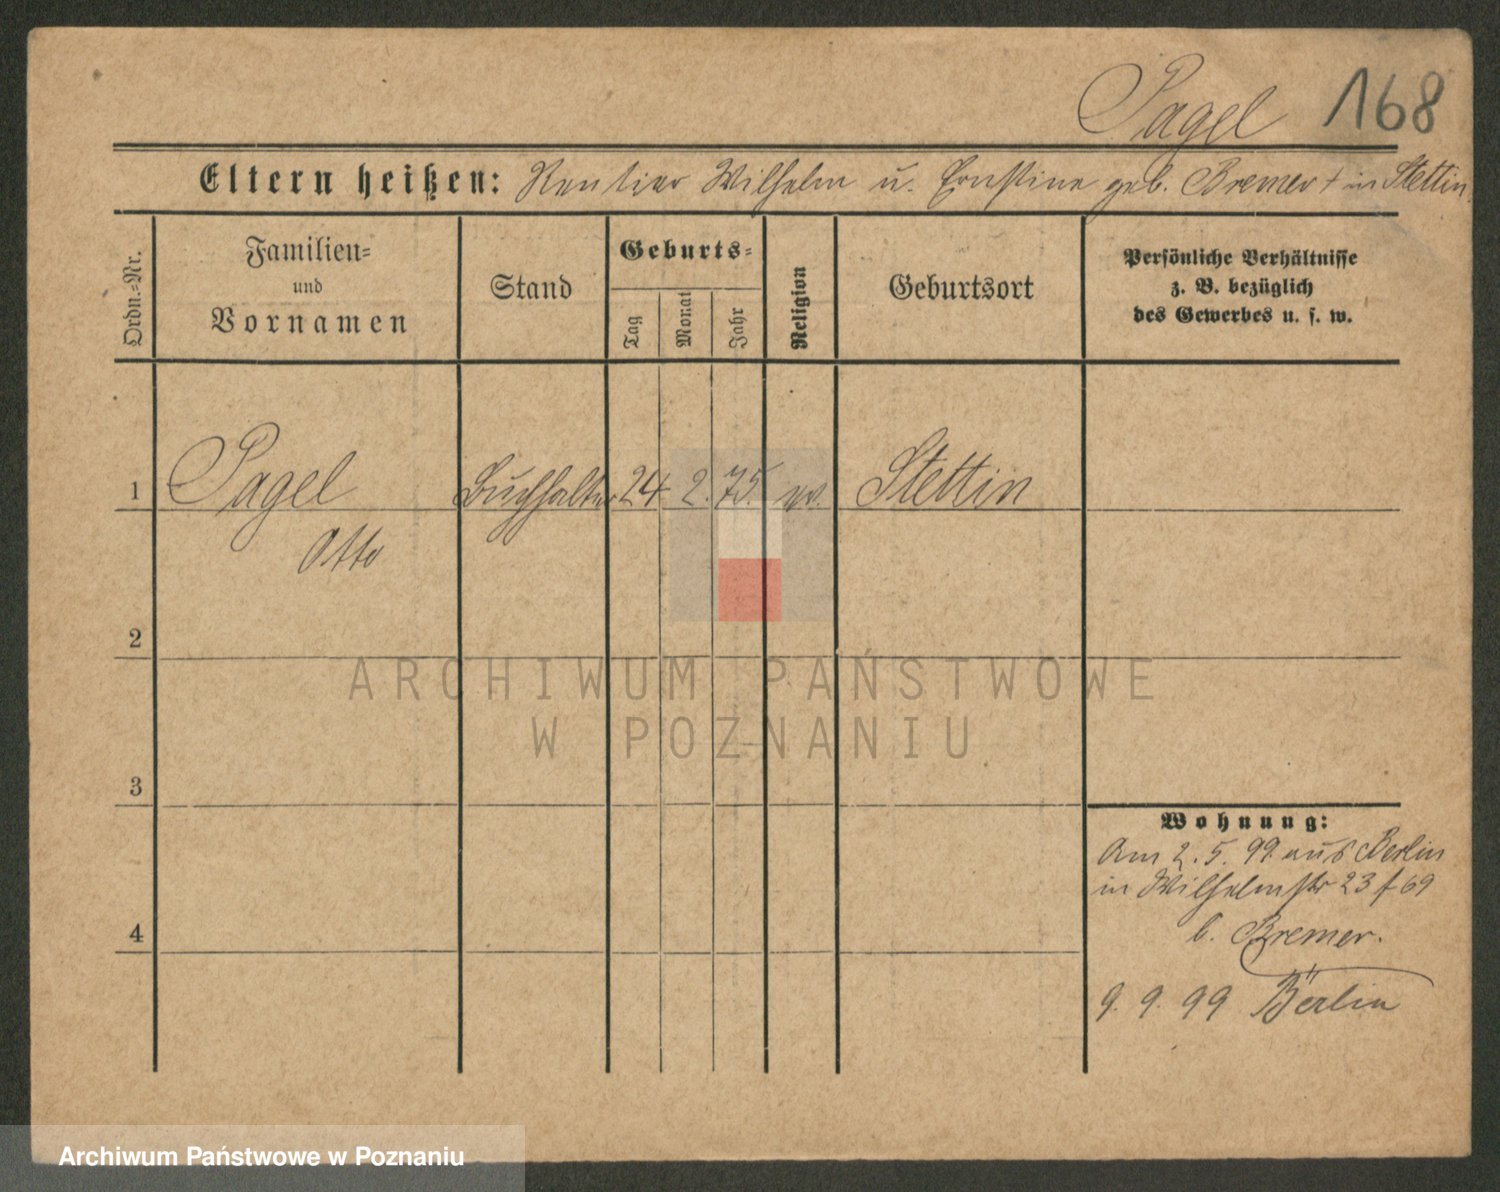 Pagel 168
Eltern heißen: Rentier Wilhelm u. Ernstine geb. Bremer + in Stettin
Ordn.=Nr.
Familien=
und
Vornamen
Stand
Geburts=
Tag
Monat
Jahr
Religion
Geburtsort
Persönliche Verhältnisse
z. B. bezüglich
des Gewerbes u. s. w.
1 Pagel Buchhalter 24 2. 75. ev. Stettin
Otto
2
3
4
Wohnung:
Am 2. 5. 99. aus Berlin
in Wilhelmstr 23 f 69
b. Bremer.
9. 9. 99 Berlin
ARCHIWUM PAŃSTWOWE
W POZNANIU
Archiwum Państwowe w Poznaniu